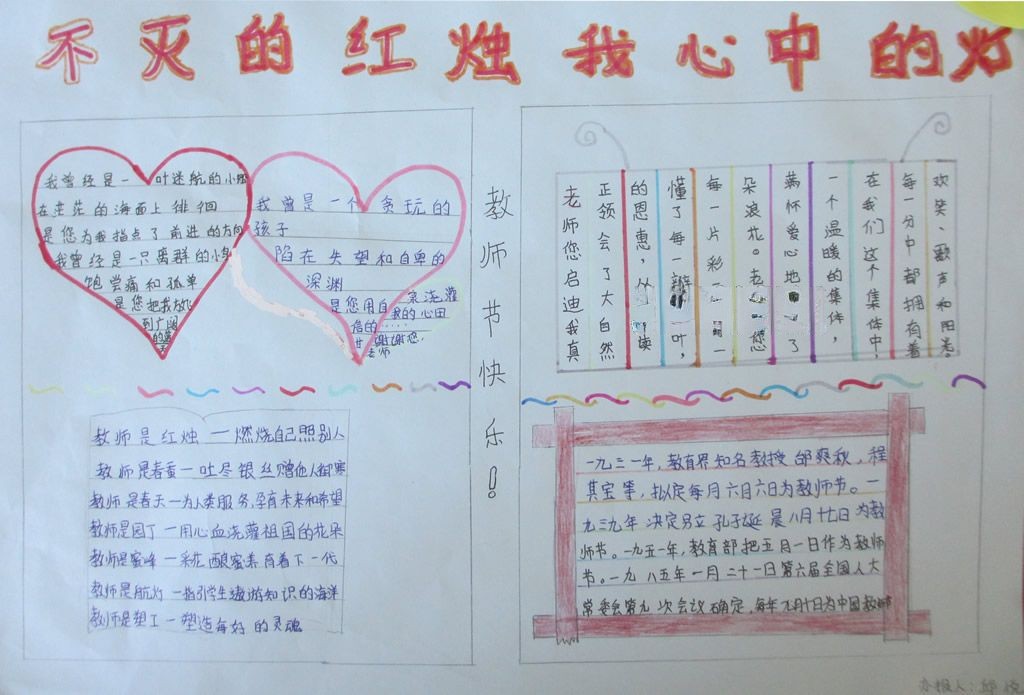 不灭的红烛 我心中的灯
我曾经是一叶迷航的小船
在茫茫的海面上徘徊
是您为我指点了前进的方向
我曾经是一只离群的小鸟
饱尝痛和孤单
是您把我放飞
到广阔
的蓝
我曾是一个贪玩的
孩子
陷在失望和自卑的
深渊
是您用自来浇灌
我的心田
信的……
谢谢您,
老师
教师节快乐!
老师您启迪我真
正领会了大自然
的恩惠,从读
懂了每一瓣叶,
每一片彩一
朵浪花。老您
满怀爱心地了
一个温暖的集体,
在我们这个集体中,
每一分中都拥有着
欢笑、歌声和阳光。
教师是红烛一燃烧自己照别人
教师是春蚕一吐尽银丝赠他人御寒
教师是春天一为人类服务,孕育未来和希望
教师是园丁一用心血浇灌祖国的花朵
教师是蜜峰一采花酿蜜养育着下一代
教师是航灯一指引学生遨游知识的海洋
教师是塑工一塑造每好的灵魂
一九三一年,教育界知名教授邰爽秋,程
其宝等,拟定每月六月六日为教师节。一
九三九年决定另立孔子诞晨八月十七日为教
师节。一九五一年,教育部把五月一日作为教师
节。一九八五年一月二十一日第六届全国人大
常委会第九次会议确定,每年九月十日为中国教师节
办报人: